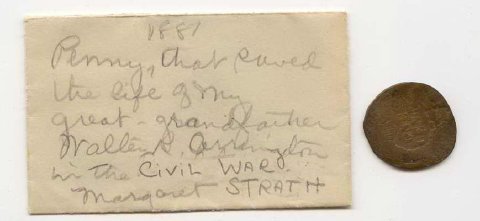 1881
Penny, that saved
the life of my
great-grandfather
Walter R. Arrington
in the CIVIL WAR.
Margaret STRATH